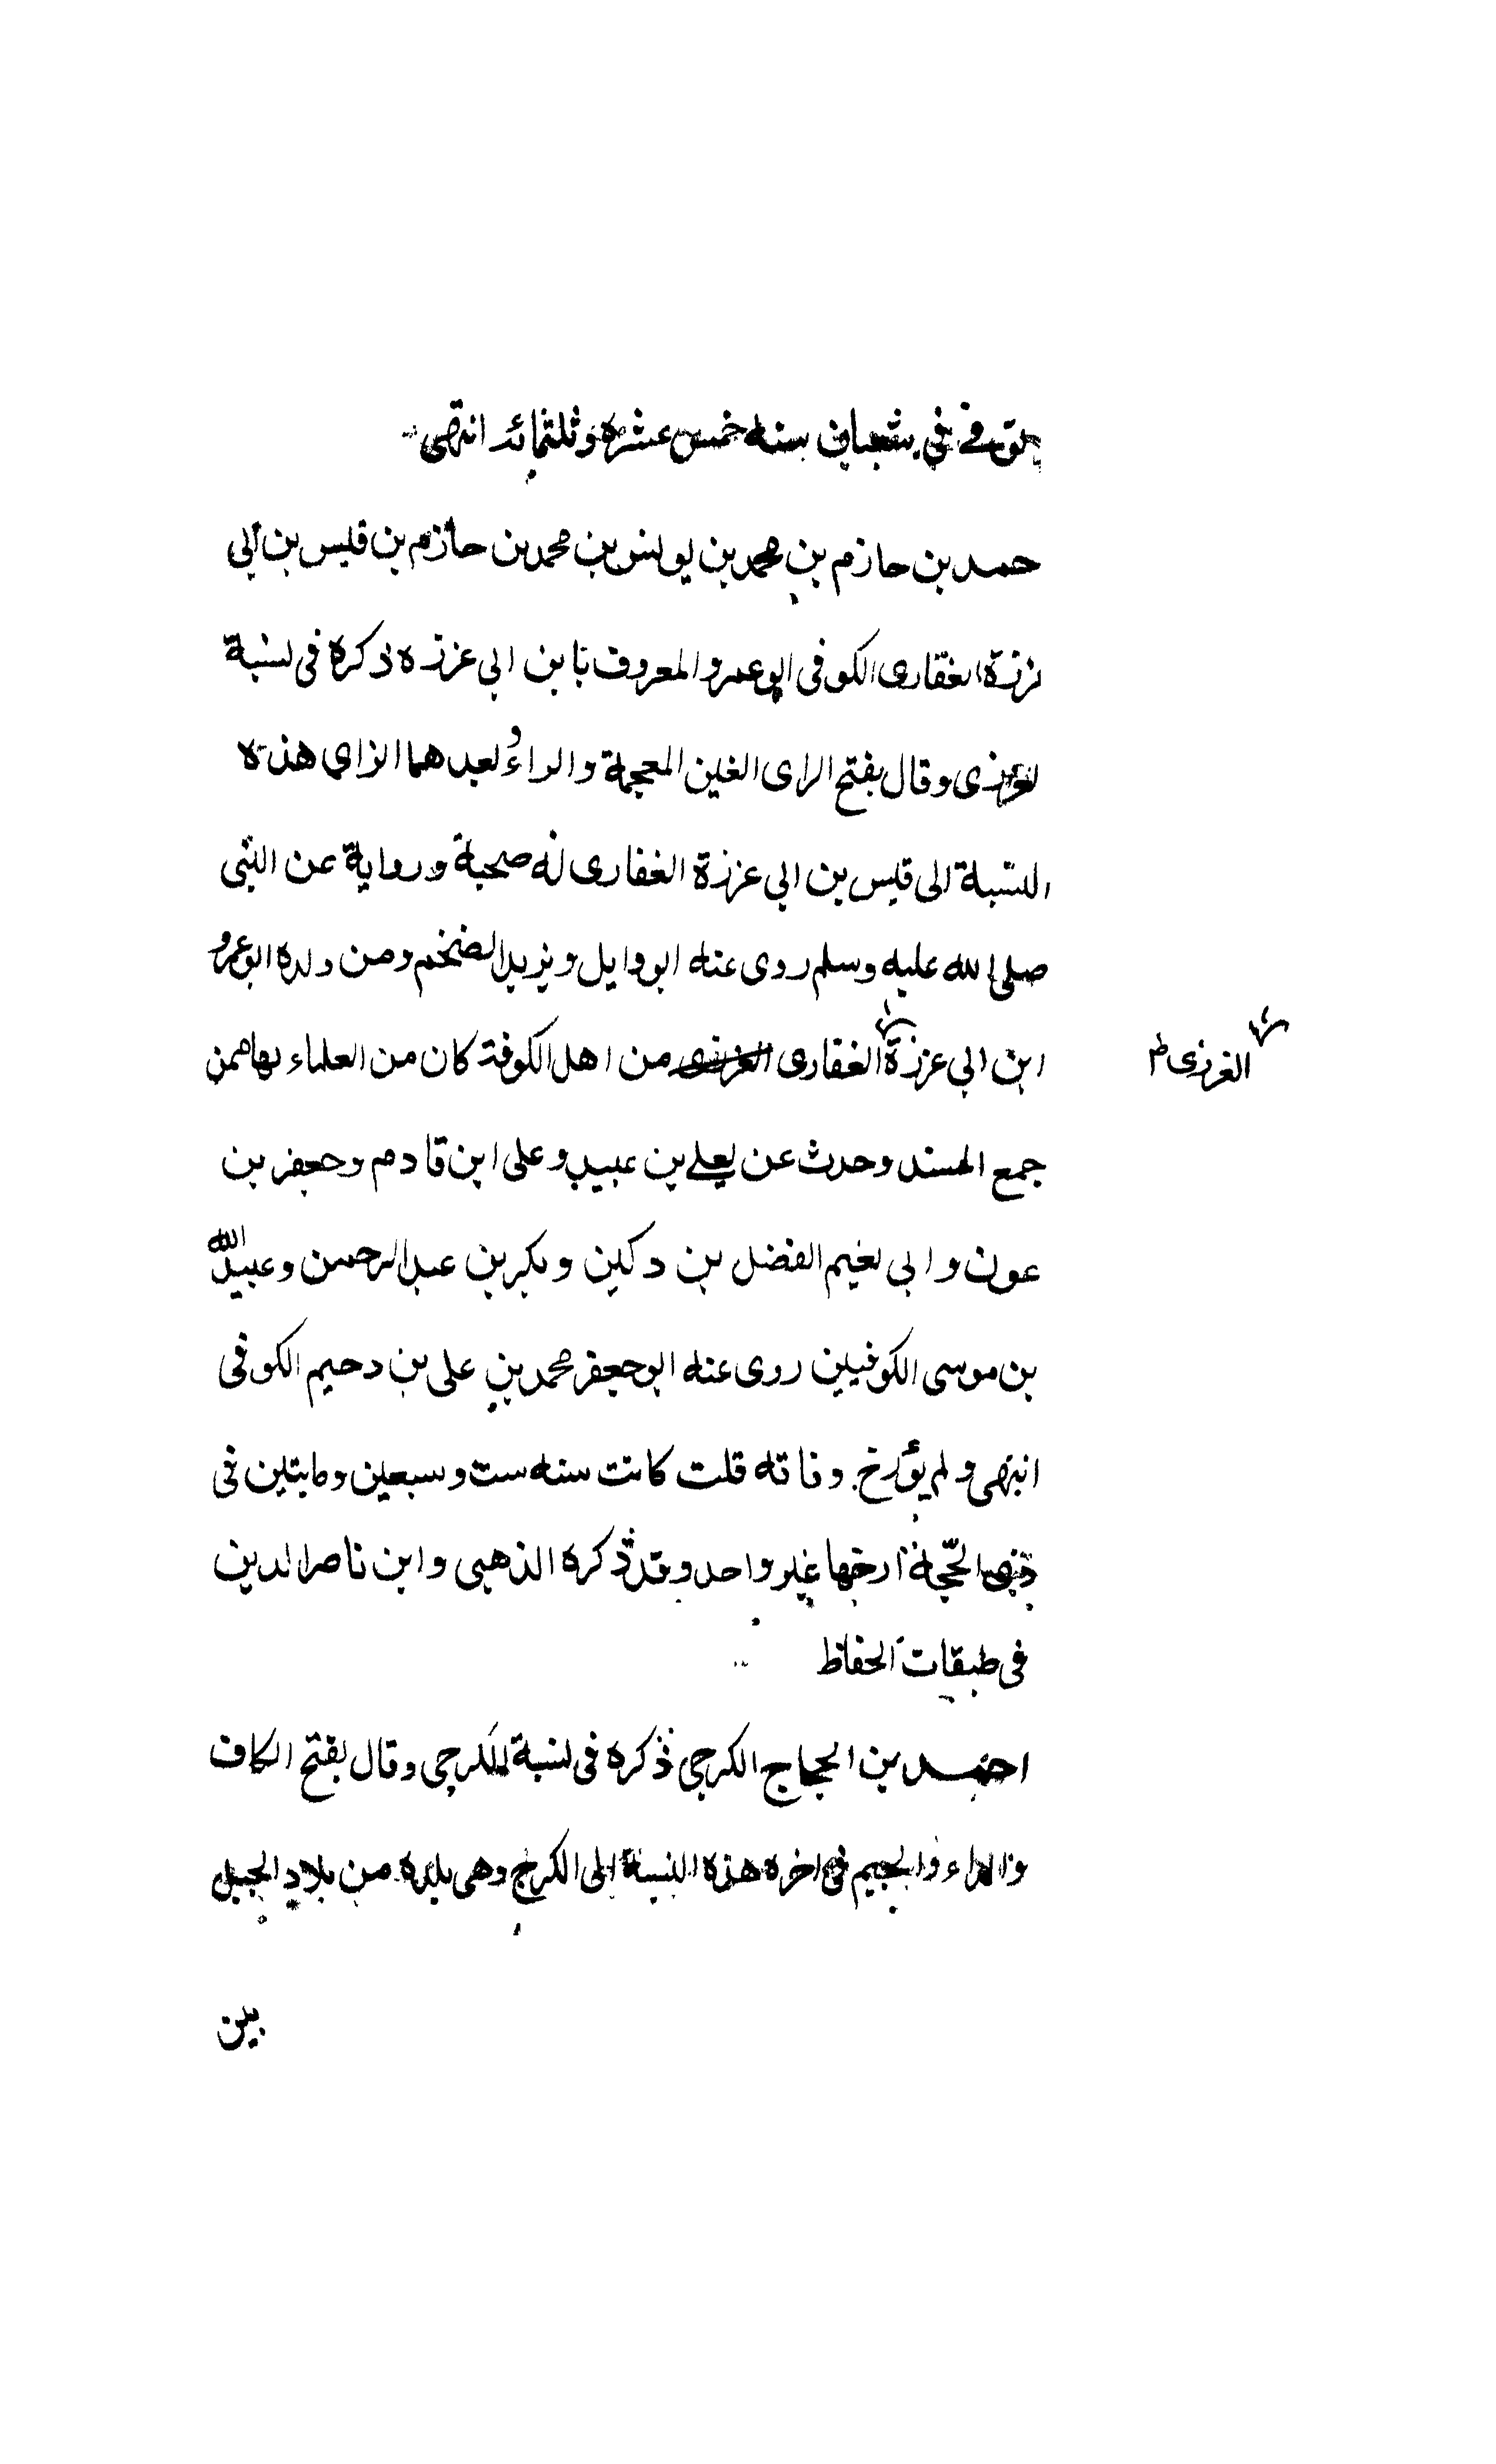 توفي في شعبان سنه خمس عشره وثلثمائد انتهى
حمد بن حازم بن محمد بن يونس بن محمد بن حازم بن قيس بن ابي
رزة الغفارى الكوفى ابو عمرو المعروف بابن ابي عزرة ذكره فى نسبة
وقال بفتح الراى الغين المعجمة والراء وبعدهما الزاي هذه
النسبة الى قيس بن ابي عزرة الغفارى له صحبة ورواية عن النبى
صلى الله عليه وسلم روى عنه ابو وايل ويزيد الضخم ومن ولده ابو عمرو
ابن ابي عزرة الغفارى من اهل الكوفة كان من العلماء بها ممن
الغرزى
جمع المسند وحدث عن يعلى بن عبيد وعلى ابن قادم وجعفر بن
عون وابي نعيم الفضل بن دكين وبكر بن عبد الرحمن وعبيد الله
بن موسى الكوفيين روى عنه ابو جعفر محمد بن على بن دحيم الكوفى
انتهى ولم يؤرخ وفاته قلت كانت سنه ست وسبعين ومايتين فى
ذى الحجة ارخها غير واحد وقد ذكره الذهبى وابن ناصر الدين
فى طبقات الحفاظ
احمد بن الحجاج الكرجي ذكره فى نسبة الكرجى وقال بفتح الكاف
والراء والجيم فى اخره هذه النسبة الى الكرج وهى بلده من بلاد الجبل
بين